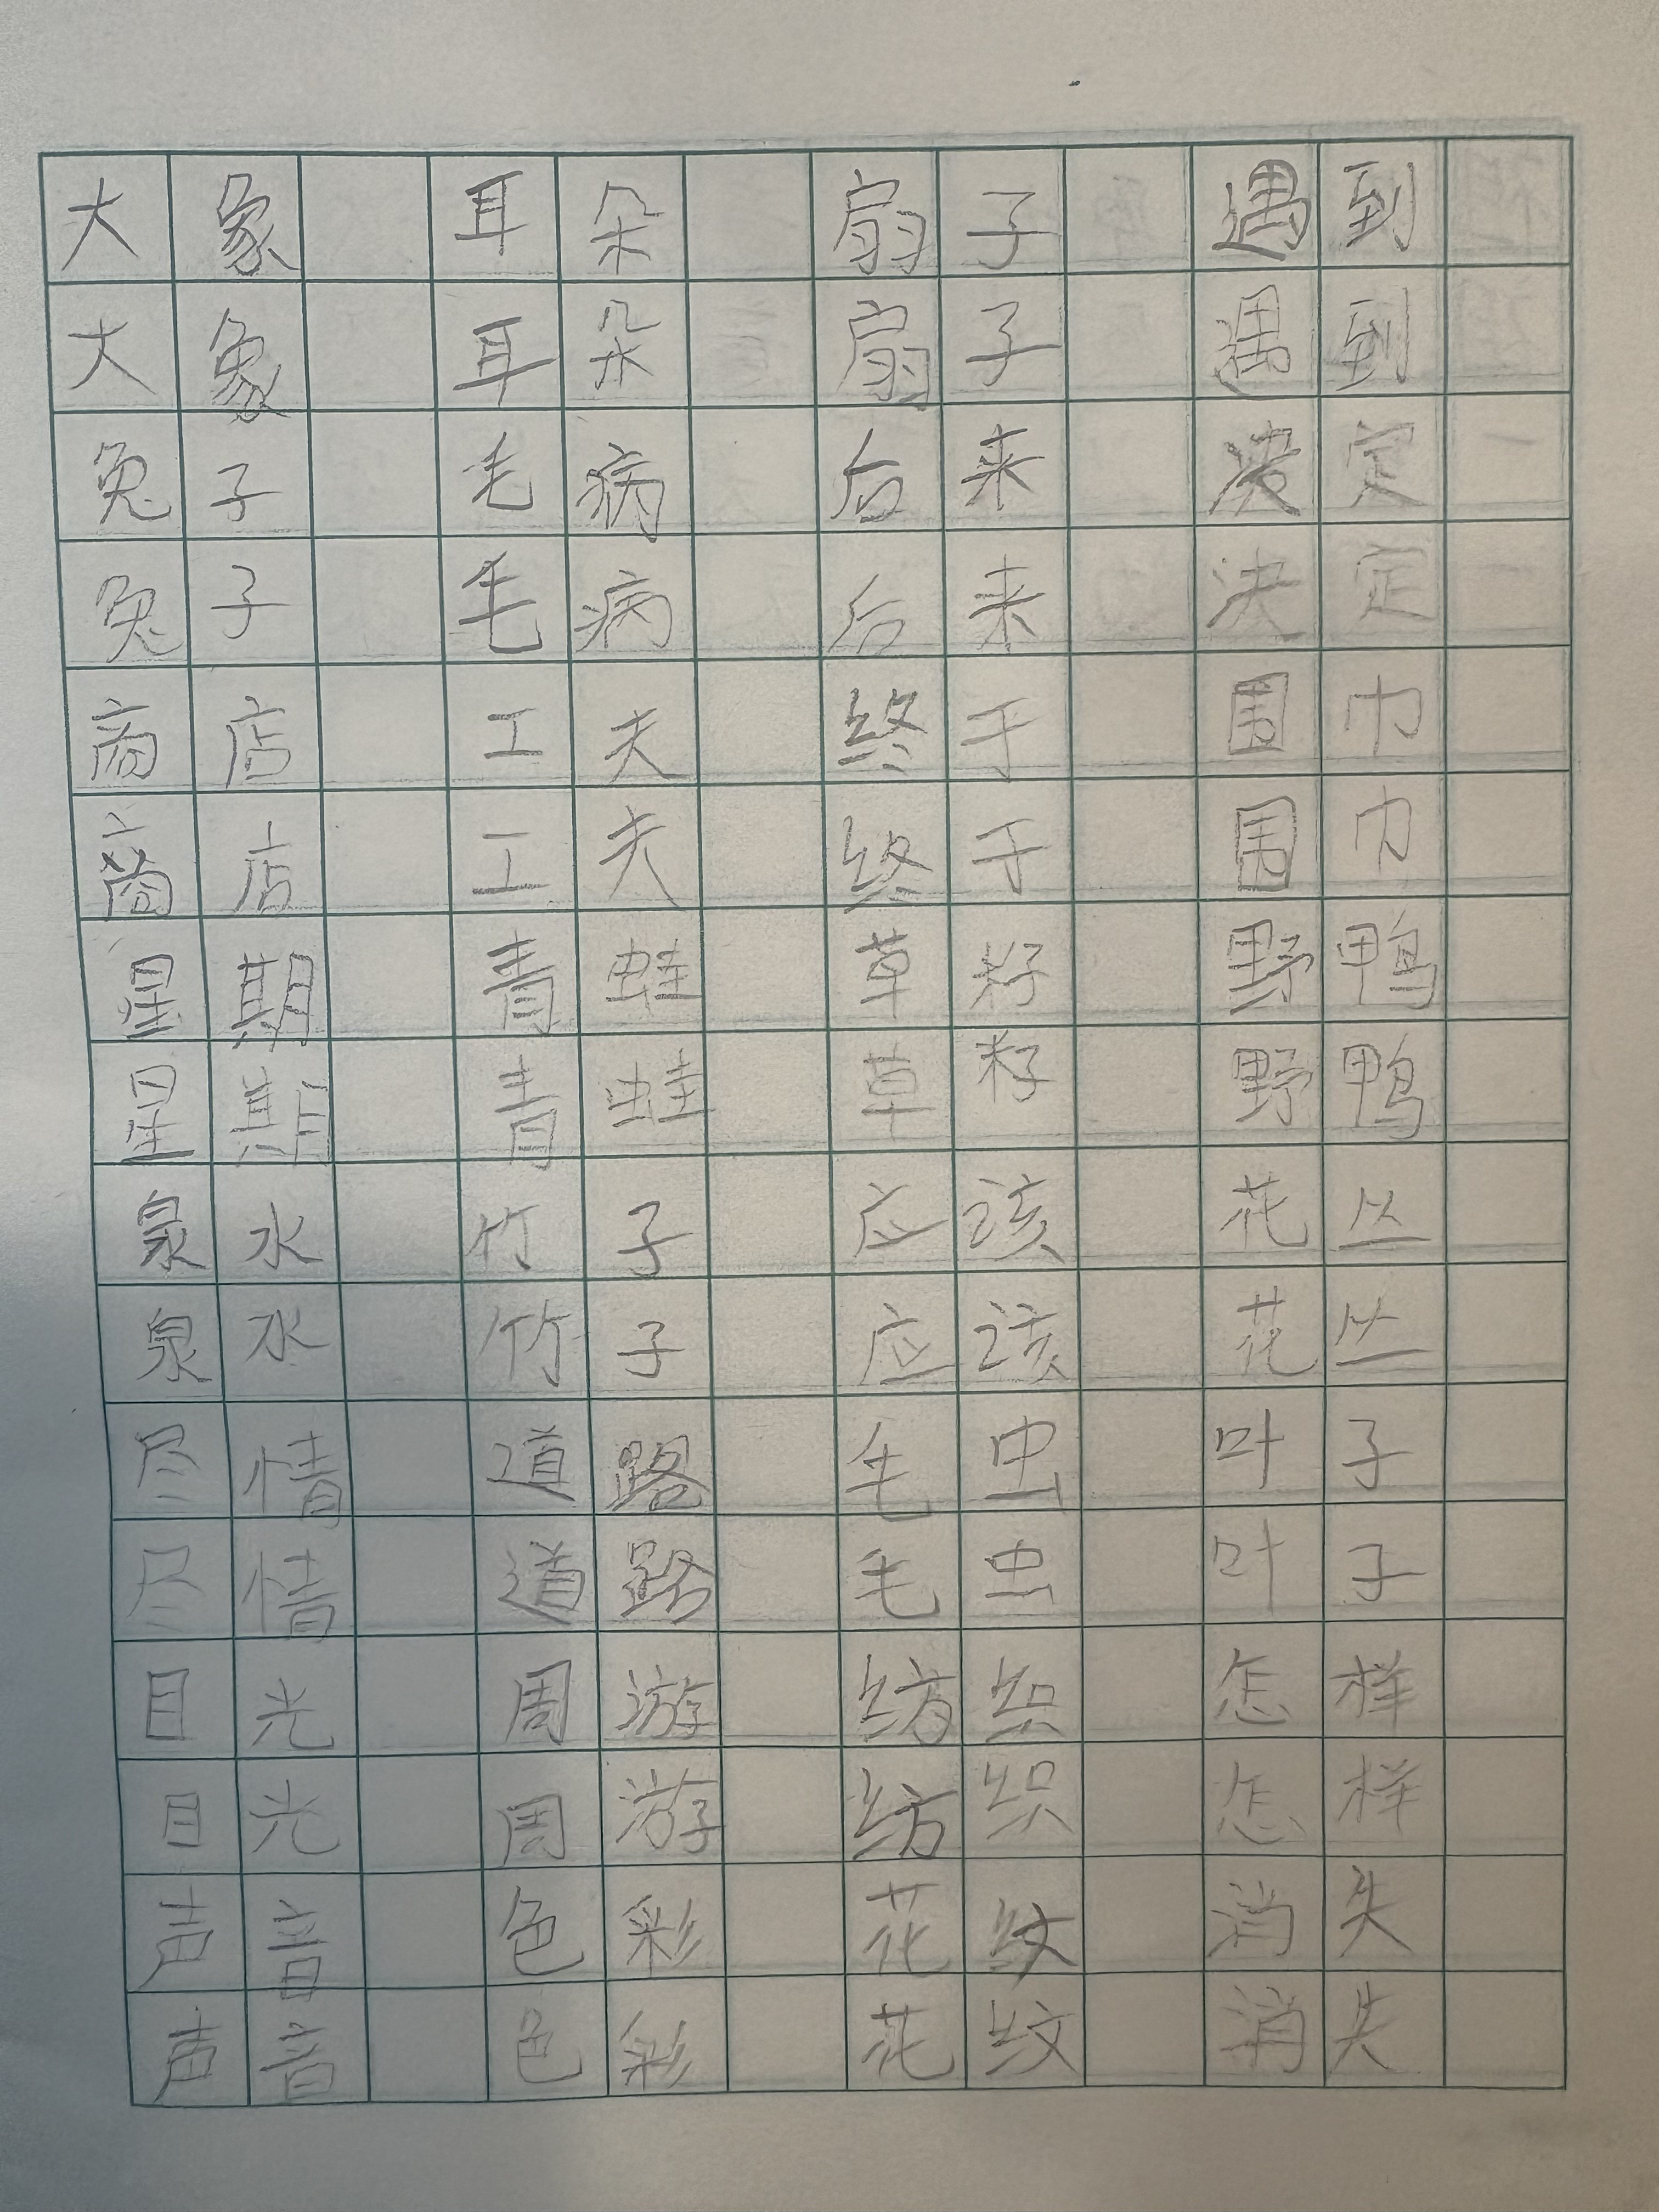 大象 耳朵 扇子 遇到
大象 耳朵 扇子 遇到
兔子 毛病 后来 决定
兔子 毛病 后来 决定
商店 工夫 终于 围巾
商店 工夫 终于 围巾
星期 青蛙 草籽 野鸭
星期 青蛙 草籽 野鸭
泉水 竹子 应该 花丛
泉水 竹子 应该 花丛
尽情 道路 毛虫 叶子
尽情 道路 毛虫 叶子
目光 周游 纺织 怎样
目光 周游 纺织 怎样
声音 色彩 花纹 消失
声音 色彩 花纹 消失